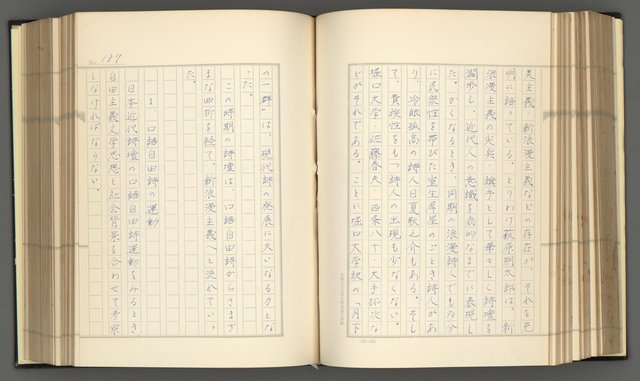 美主義・新浪漫主義などの存在が、それを克
明に語っている。とりわけ萩原朔太郎は、新
浪漫主義の尖兵、旗手として華々しく詩壇を
濶歩し、近代人の意識を病的なまでに表現し
た。かくなるとき、同期の浪漫詩人でも多分
に民衆性を帯びた室生犀星のごとき詩人があ
り、冷眼孤高の詩人日夏耿之介もある。そし
て、貴族性をもつ詩人の出現も少なくない。
堀口大学・佐藤春夫・西条八十・大手拓次な
どがそれである。ことに堀口大学紋の「月下
No. 137
の一群」は、現代詩の発展に大いなる力とな
った。
この時期の詩壇は、口語自由詩からさまざ
まな曲折を経て、新浪漫主義へと流れていっ
た。
1 口語自由詩の運動
日本近代詩壇の口語自由詩運動をみるとき
自由主義文学思想と社会背景を合わせて考察
しなければならない。